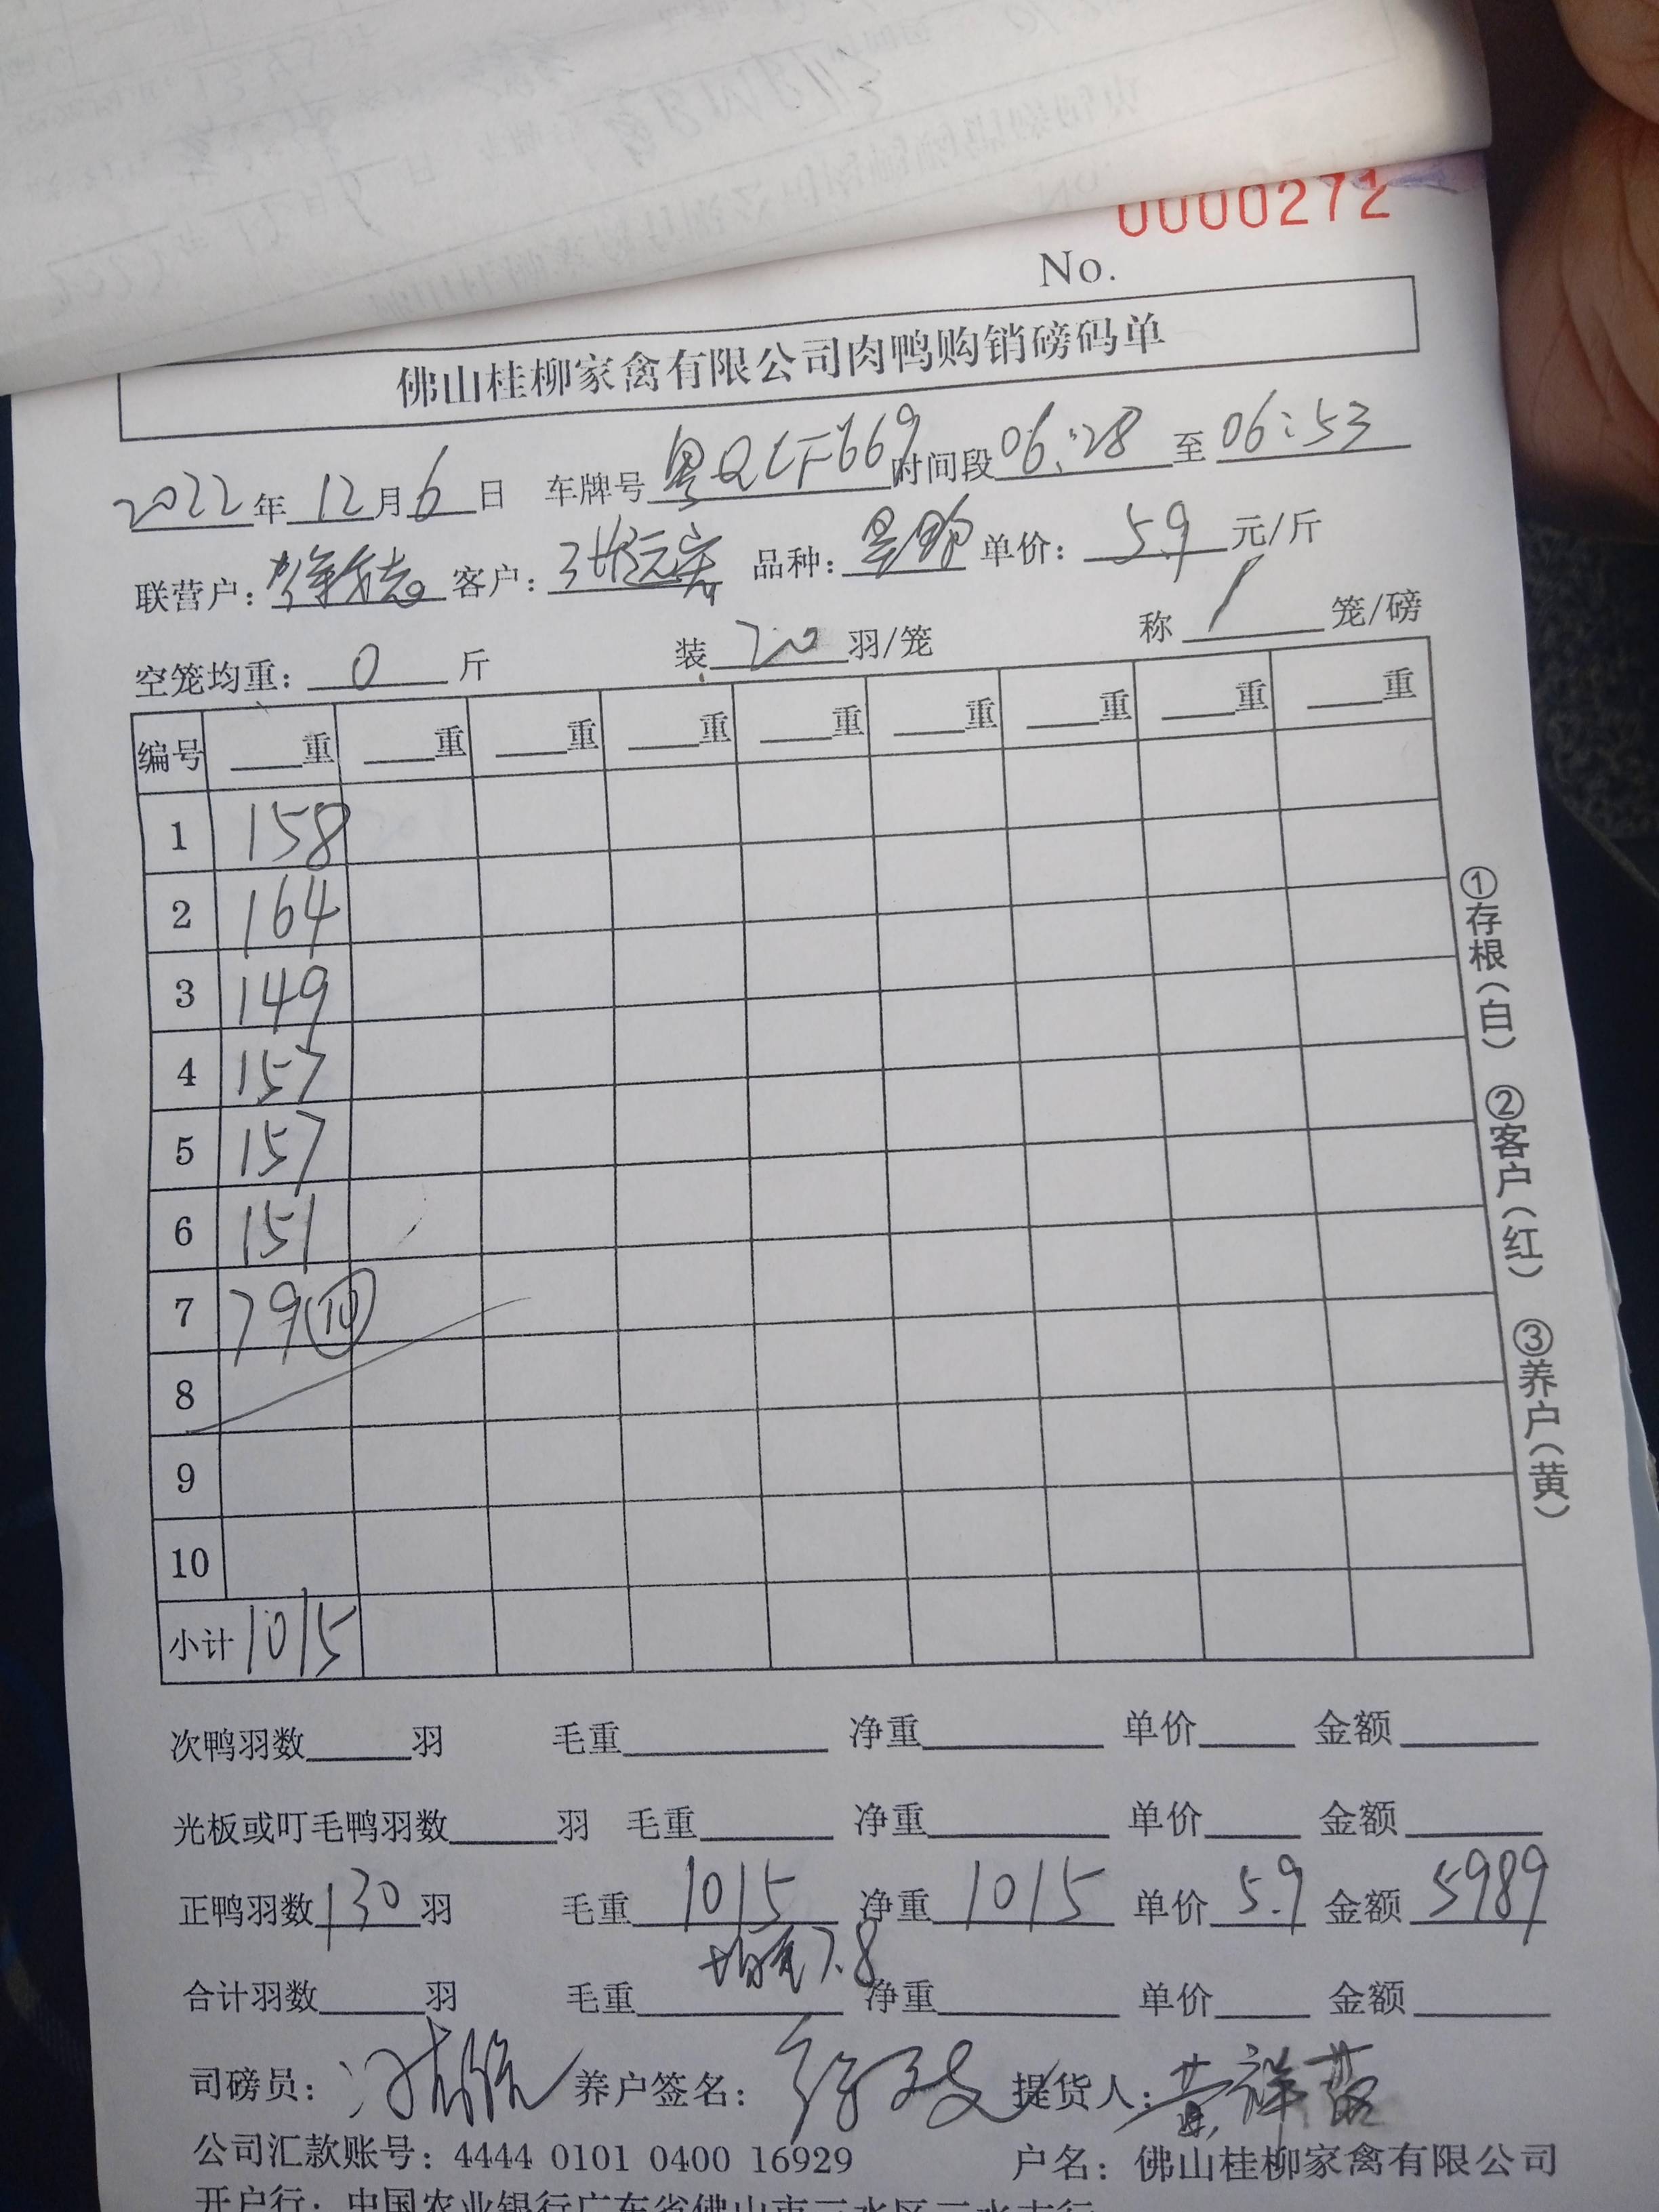 0000272
No.
佛山桂柳家禽有限公司肉鸭购销磅码单
2022年12月6日 车牌号粤QLF669时间段06:28至06:53
联营户: 客户: 品种: 单价: 5.9元/斤
空笼均重: 0斤 装20羽/笼 称1笼/磅
编号 重 重 重 重 重 重 重 重 重
1 158
2 164
3 149
4 157
5 157
6 151
7 79(10)
8
9
10
小计 1015
①存根(白) ②客户(红) ③养户(黄)
次鸭羽数 羽 毛重 净重 单价 金额
光板或叮毛鸭羽数 羽 毛重 净重 单价 金额
正鸭羽数130羽 毛重1015 净重1015 单价5.9 金额5989
均重7.8
合计羽数 羽 毛重 净重 单价 金额
司磅员: 养户签名: 提货人:
公司汇款账号: 4444 0101 0400 16929 户名: 佛山桂柳家禽有限公司
开户行: 中国农业银行广东省佛山市三水区三水支行